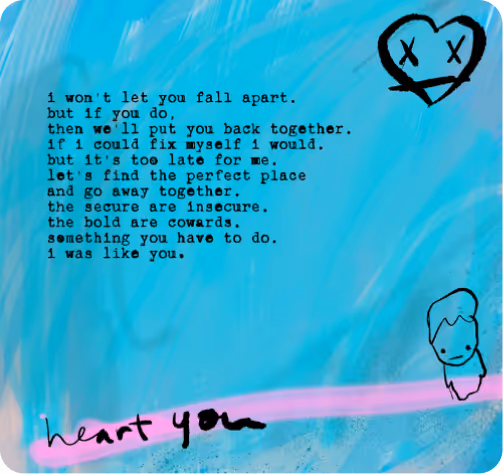 i won't let you fall apart.
but if you do,
then we'll put you back together.
if i could fix myself i would.
but it's too late for me.
let's find the perfect place
and go away together.
the secure are insecure.
the bold are cowards.
something you have to do.
i was like you.
heart you